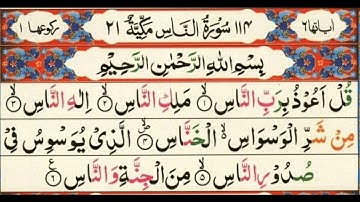 اٰیاتها ٦ ١١٤ سُوْرَةُ النَّاسِ مَكِّیَّةٌ ٢١ رکوعها ١
بِسْمِ اللهِ الرَّحْمٰنِ الرَّحِیْمِ
قُلْ اَعُوْذُ بِرَبِّ النَّاسِ ۙ‏ ١ مَلِكِ النَّاسِ ۙ‏ ٢ اِلٰهِ النَّاسِ ۙ‏ ٣
مِنْ شَرِّ الْوَسْوَاسِ ۙ۬ الْخَنَّاسِ ۪ۙ‏ ٤ الَّذِیْ یُوَسْوِسُ فِیْ
صُدُوْرِ النَّاسِ ۙ‏ ٥ مِنَ الْجِنَّةِ وَالنَّاسِ ٦